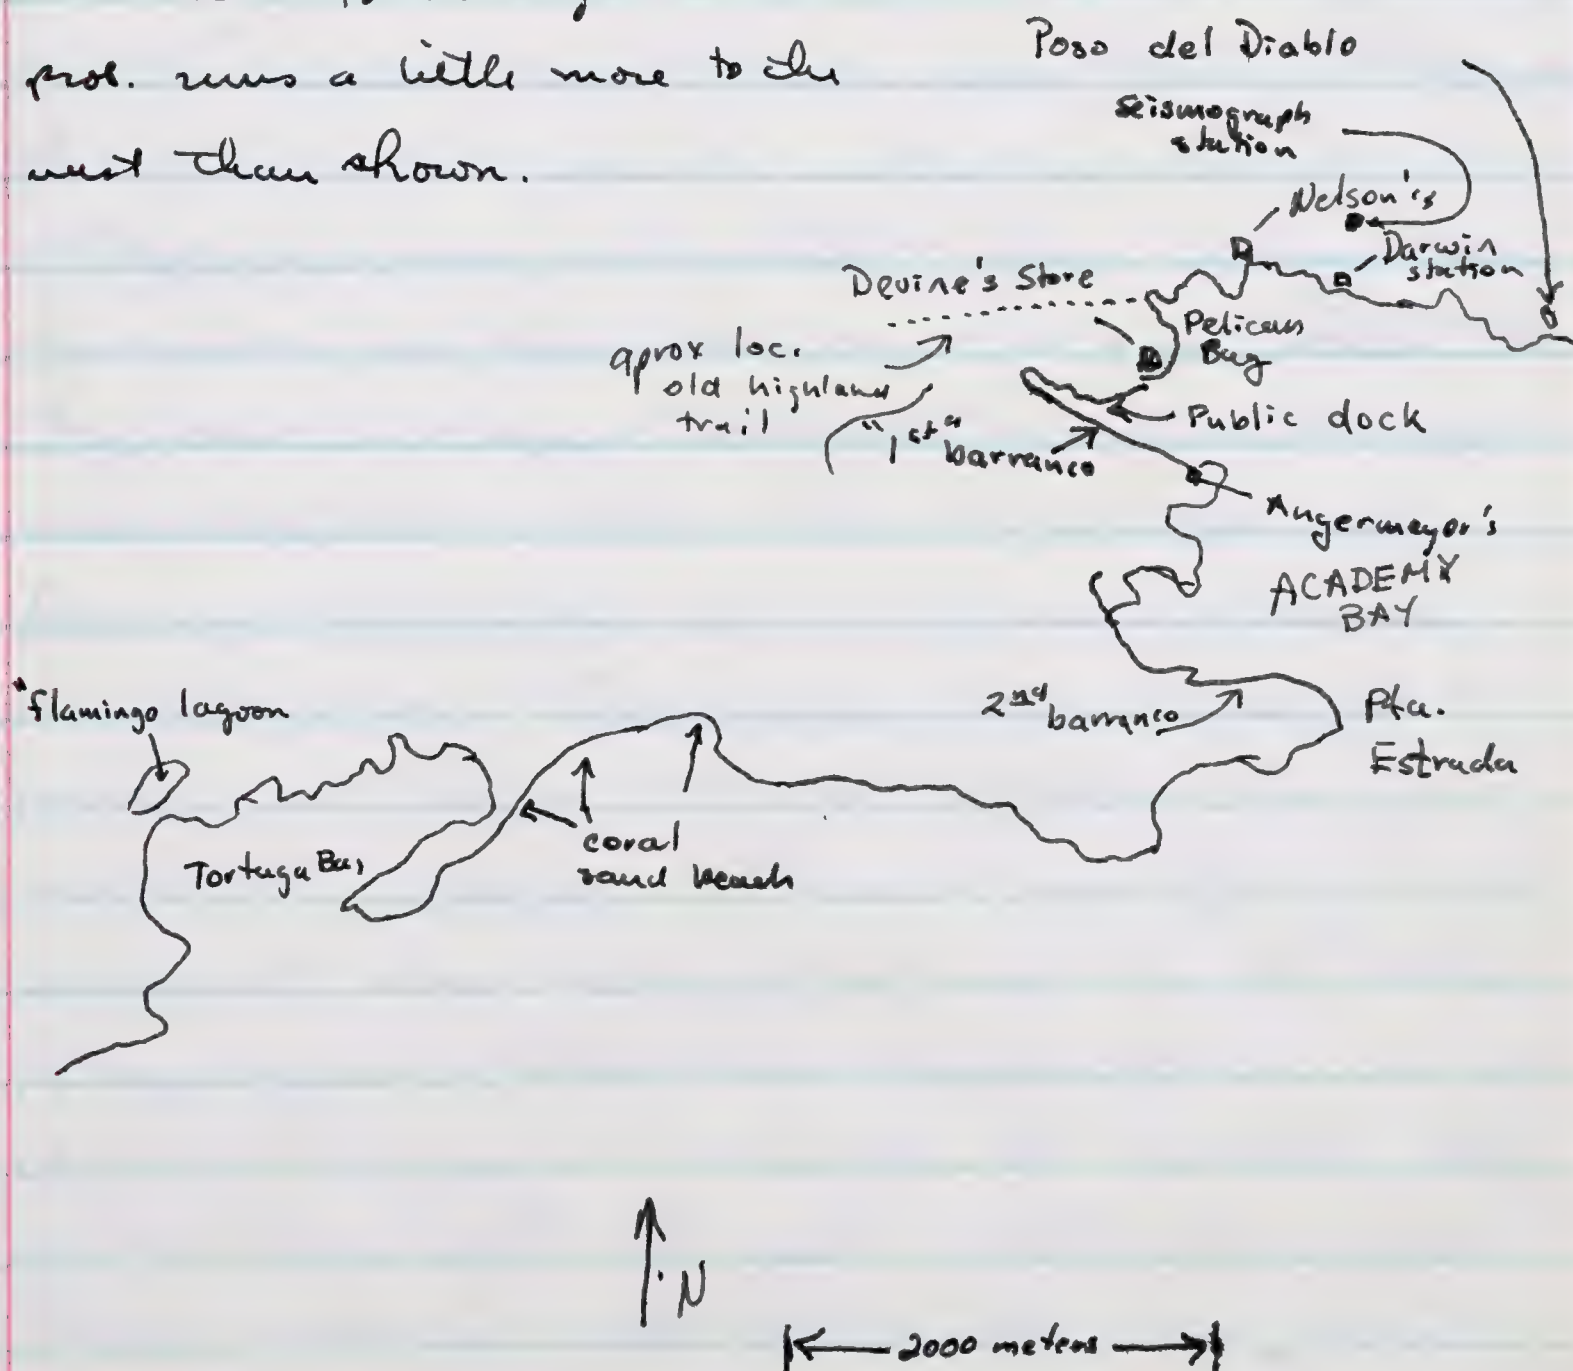 prob. runs a little more to the
west than shown.
Poso del Diablo
seismograph
station
Nelson's
Darwin
station
Devine's Store
Pelican
Bay
aprox loc.
old highland
trail
Public dock
"1st"
barranco
Angermeyer's
ACADEMY
BAY
"flamingo lagoon
2nd
barranco
Pta.
Estrada
Tortuga Bay
coral
sand beach
N
2000 meters